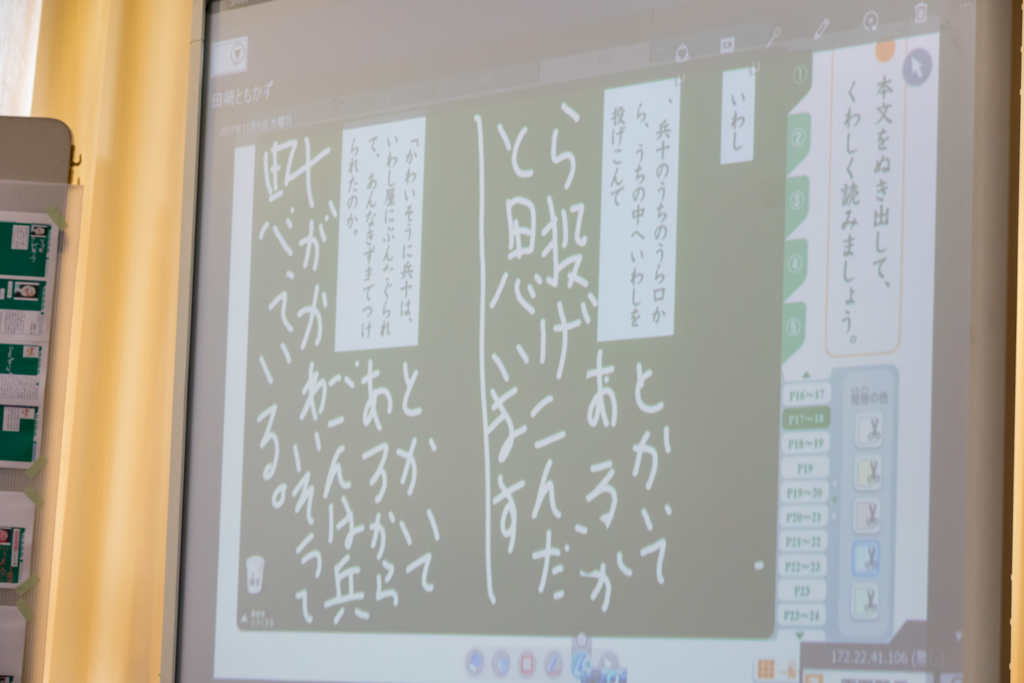 田﨑ともかず
2017年11月8日 水曜日
本文をぬき出して、
くわしく読みましょう。
①
②
③
④
⑤
P16~17
P17~18
P18~19
P19
P19~20
P20~21
P21~22
P22~23
P23
P23~24
短冊の色
いわし
、兵十のうちのうら口か
ら、うちの中へいわしを
投げこんで
とかいて
あるか
ら投げこんだ
と思います
「かわいそうに兵十は、
いわし屋にぶんなぐられ
て、あんなきずまでつけ
られたのか。
とかいて
あるから
ごんは兵
十がかわいそうって
172.22.41.106